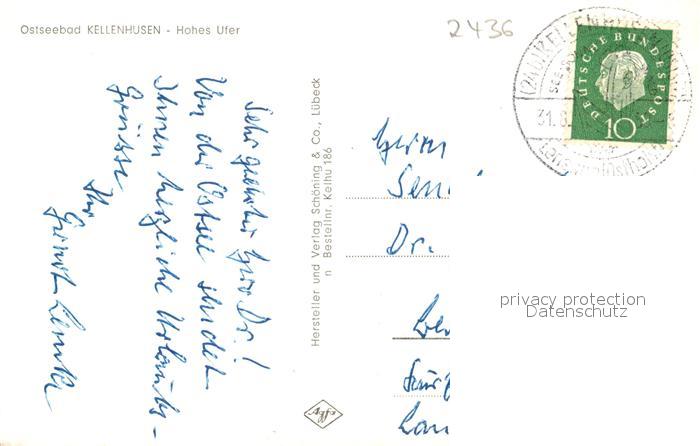 Ostseebad KELLENHUSEN - Hohes Ufer
2436
DEUTSCHE BUNDESPOST
10
31.8.
Sehr geehrter Herr Dr.!
Von der Ostsee sendet
Ihnen herzliche Urlaubs-
Grüsse
Ihr
Hersteller und Verlag Schöning & Co., Lübeck
n Bestellnr. Kelhu 186
Agfa
Herrn
Dr.
privacy protection
Datenschutz